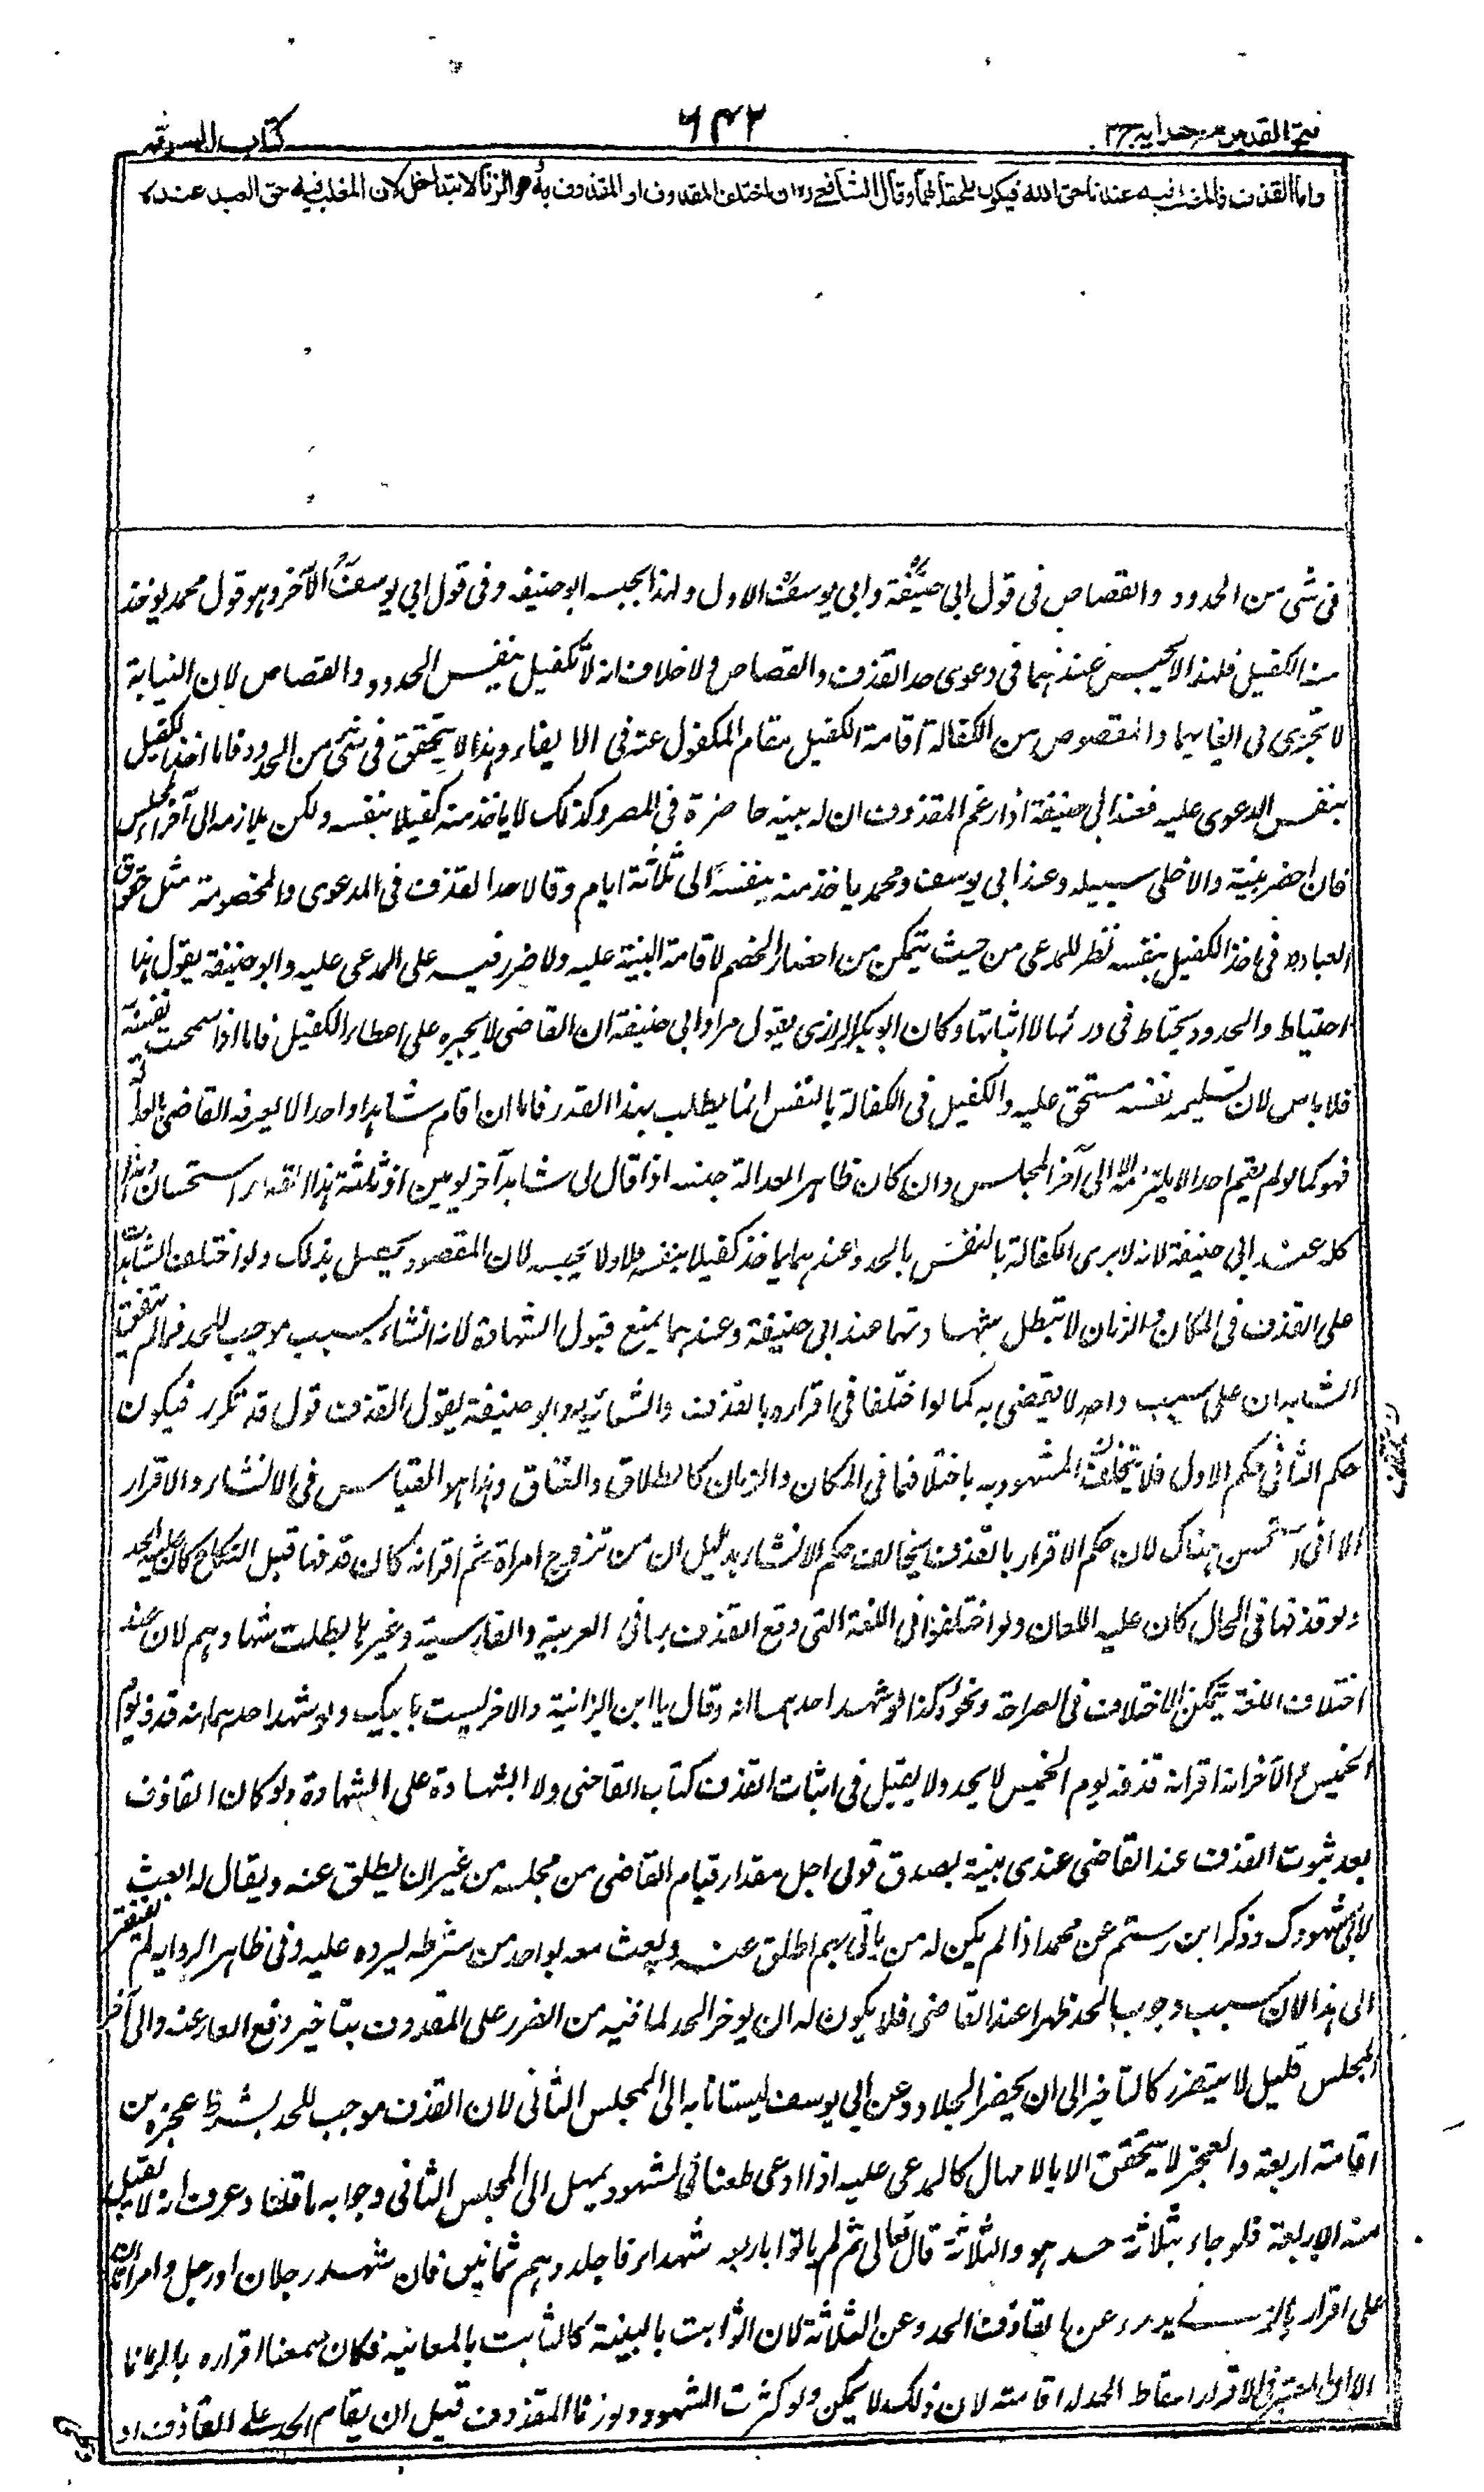 فتح القدير مع هدايه ج ٢
٦٤٢
كتاب السرقة
واما القذف فالمغلب فيه عندنا حق الله فيكون ملحقا بهما وقال الشافعي رح ان اختلف المقذوف او المقذوف به وهو الزنا لا يتداخل لان المغلب فيه حق العبد عنده
فى شى من الحدود والقصاص فى قول ابى حنيفة وابى يوسف الاول ولهذا يحبسه ابو حنيفه وفى قول ابى يوسف الآخر وهو قول محمد يوخذ
منه الكفيل فلهذا لا يحبس عندهما فى دعوى حد القذف والقصاص ولا خلاف انه لا تكفيل بنفس الحدود والقصاص لان النيابة
لا تجزى فى ايفائهما والمقصود من الكفالة اقامة الكفيل مقام المكفول عنه فى الايفاء وهذا لا يتحقق فى شى من الحدود فاما اخذ الكفيل
بنفس المدعوى عليه فعند ابى حنيفة اذا زعم المقذوف ان له بينه حاضرة فى المصر وكذلك لا ياخذ منه كفيلا بنفسه ولكن يلازمه الى آخر المجلس
فان احضر بينة والا خلى سبيله وعند ابى يوسف ومحمد ياخذ منه بنفسه الى ثلاثة ايام وقالا حد القذف فى الدعوى والخصومة مثل حقوق
العباد وفى اخذ الكفيل بنفسه نظر للمدعى من حيث يتمكن من احضار الخصم لاقامة البينة عليه ولا ضرر فيه على المدعى عليه وابو حنيفة يقول هذا
احتياط والحدود يحتاط فى درئها لا اثباتها وكان ابو بكر الرازى يقول مراد ابى حنيفة ان القاضى لا يجبره على اعطاء الكفيل فاما اذا سمحت نفسه به
فلا باس لان تسليم نفسه مستحق عليه والكفيل فى الكفالة بالنفس انما يطلب بهذا القدر فاما ان اقام شاهدا واحدا لا يعرفه القاضى بالعدالة
فهو كما لو لم يقم احدا لا يلزمه الا الى آخر المجلس وان كان ظاهر العدالة حبسه اذا قال لى شاهد آخر يومين او ثلثة هذا القدر استحسان وهذا
كله عند ابى حنيفة لانه لا يرى الكفالة بالنفس بالحد وعندهما ياخذ كفيلا بنفسه ولا يحبسه لان المقصود يحصل بذلك ولو اختلف الشاهدان
على القذف فى المكان والزمان لا تبطل شهادتهما عند ابى حنيفة وعندهما يمنع قبول الشهادة لانه انشاء بسبب موجب للحد فما لم يتفق
الشاهدان على سبب واحد لا يقضى به كما لو اختلفا فى اقراره بالقذف وانشائه وابو حنيفة يقول القذف قول قد تكرر فيكون
حكم الثانى حكم الاول فلا يختلف المشهود به باختلافهما فى المكان والزمان كالطلاق والعتاق وهذا هو القياس فى الانشاء والاقرار
الا انى استحسن هناك لان حكم الاقرار بالقذف يخالف حكم الانشاء بدليل ان من تزوج امراة ثم اقر انه كان قذفها قبل النكاح كان عليه الحد
ولو قذفها فى الحال كان عليه اللعان ولو اختلفوا فى اللغة التى وقع القذف بها فى العربية والفارسية وغيرها بطلت شهادتهم لان عند
اختلاف اللغة يتمكن الاختلاف فى الصراحة ونحوه وكذا لو شهد احدهما انه قال يا ابن الزانية والآخر لست بابيك ولو شهد احدهما انه قذفه يوم
الخميس والآخر انه اقر انه قذفه يوم الخميس لا يحد ولا يقبل فى اثبات القذف كتاب القاضى ولا الشهادة على الشهادة ولو كان القاذف
بعد ثبوت القذف عند القاضى عندى بينة بصدق قولى اجل مقدار قيام القاضى من مجلسه من غير ان يطلق عنه ويقال له ابعث
لاتى شهودك وذكر ابن رستم عن محمد اذا لم يكن له من ياتى بهم اطلق عنه وبعث معه بواحد من شرطه ليرده عليه وفى ظاهر الروايه لم يفتقر
الى هذا لان سبب وجوب الحد ظهر عند القاضى فلا يكون له ان يوخر الحد لما فيه من الضرر على المقذوف بتاخير دفع العار عنه والى آخر
المجلس قليل لا يتضرر كالتاخير الى ان يحضر الجلاد وعن ابى يوسف يستانا به الى المجلس الثانى لان القذف موجب للحد بشرط عجزه من
اقامته اربعة والعجز لا يتحقق الا بالامهال كالمدعى عليه اذا ادعى طعنا فى الشهود يمهل الى المجلس الثانى وجوابه ما قلنا وعرفت انه لا يقبل
منه الا اربعة فلو جاء بثلاثة حد هو والثلاثة قال تعالى ثم لم ياتوا باربعه شهداء فاجلدوهم ثمانين فان شهد رجلان او رجل وامراتان
على اقراره بالزنى يدرء عن القاذف الحد وعن الثلاثة لان الثابت بالبينة كالثابت بالمعاينه فكان سمعنا اقراره بالزنا
الا ان المعتبر فى الاقرار اسقاط الحد لا اقامته لان ذلك لا يمكن ولو كثرت الشهود ولو زنا المقذوف قبل ان يقام الحد على القاذف او